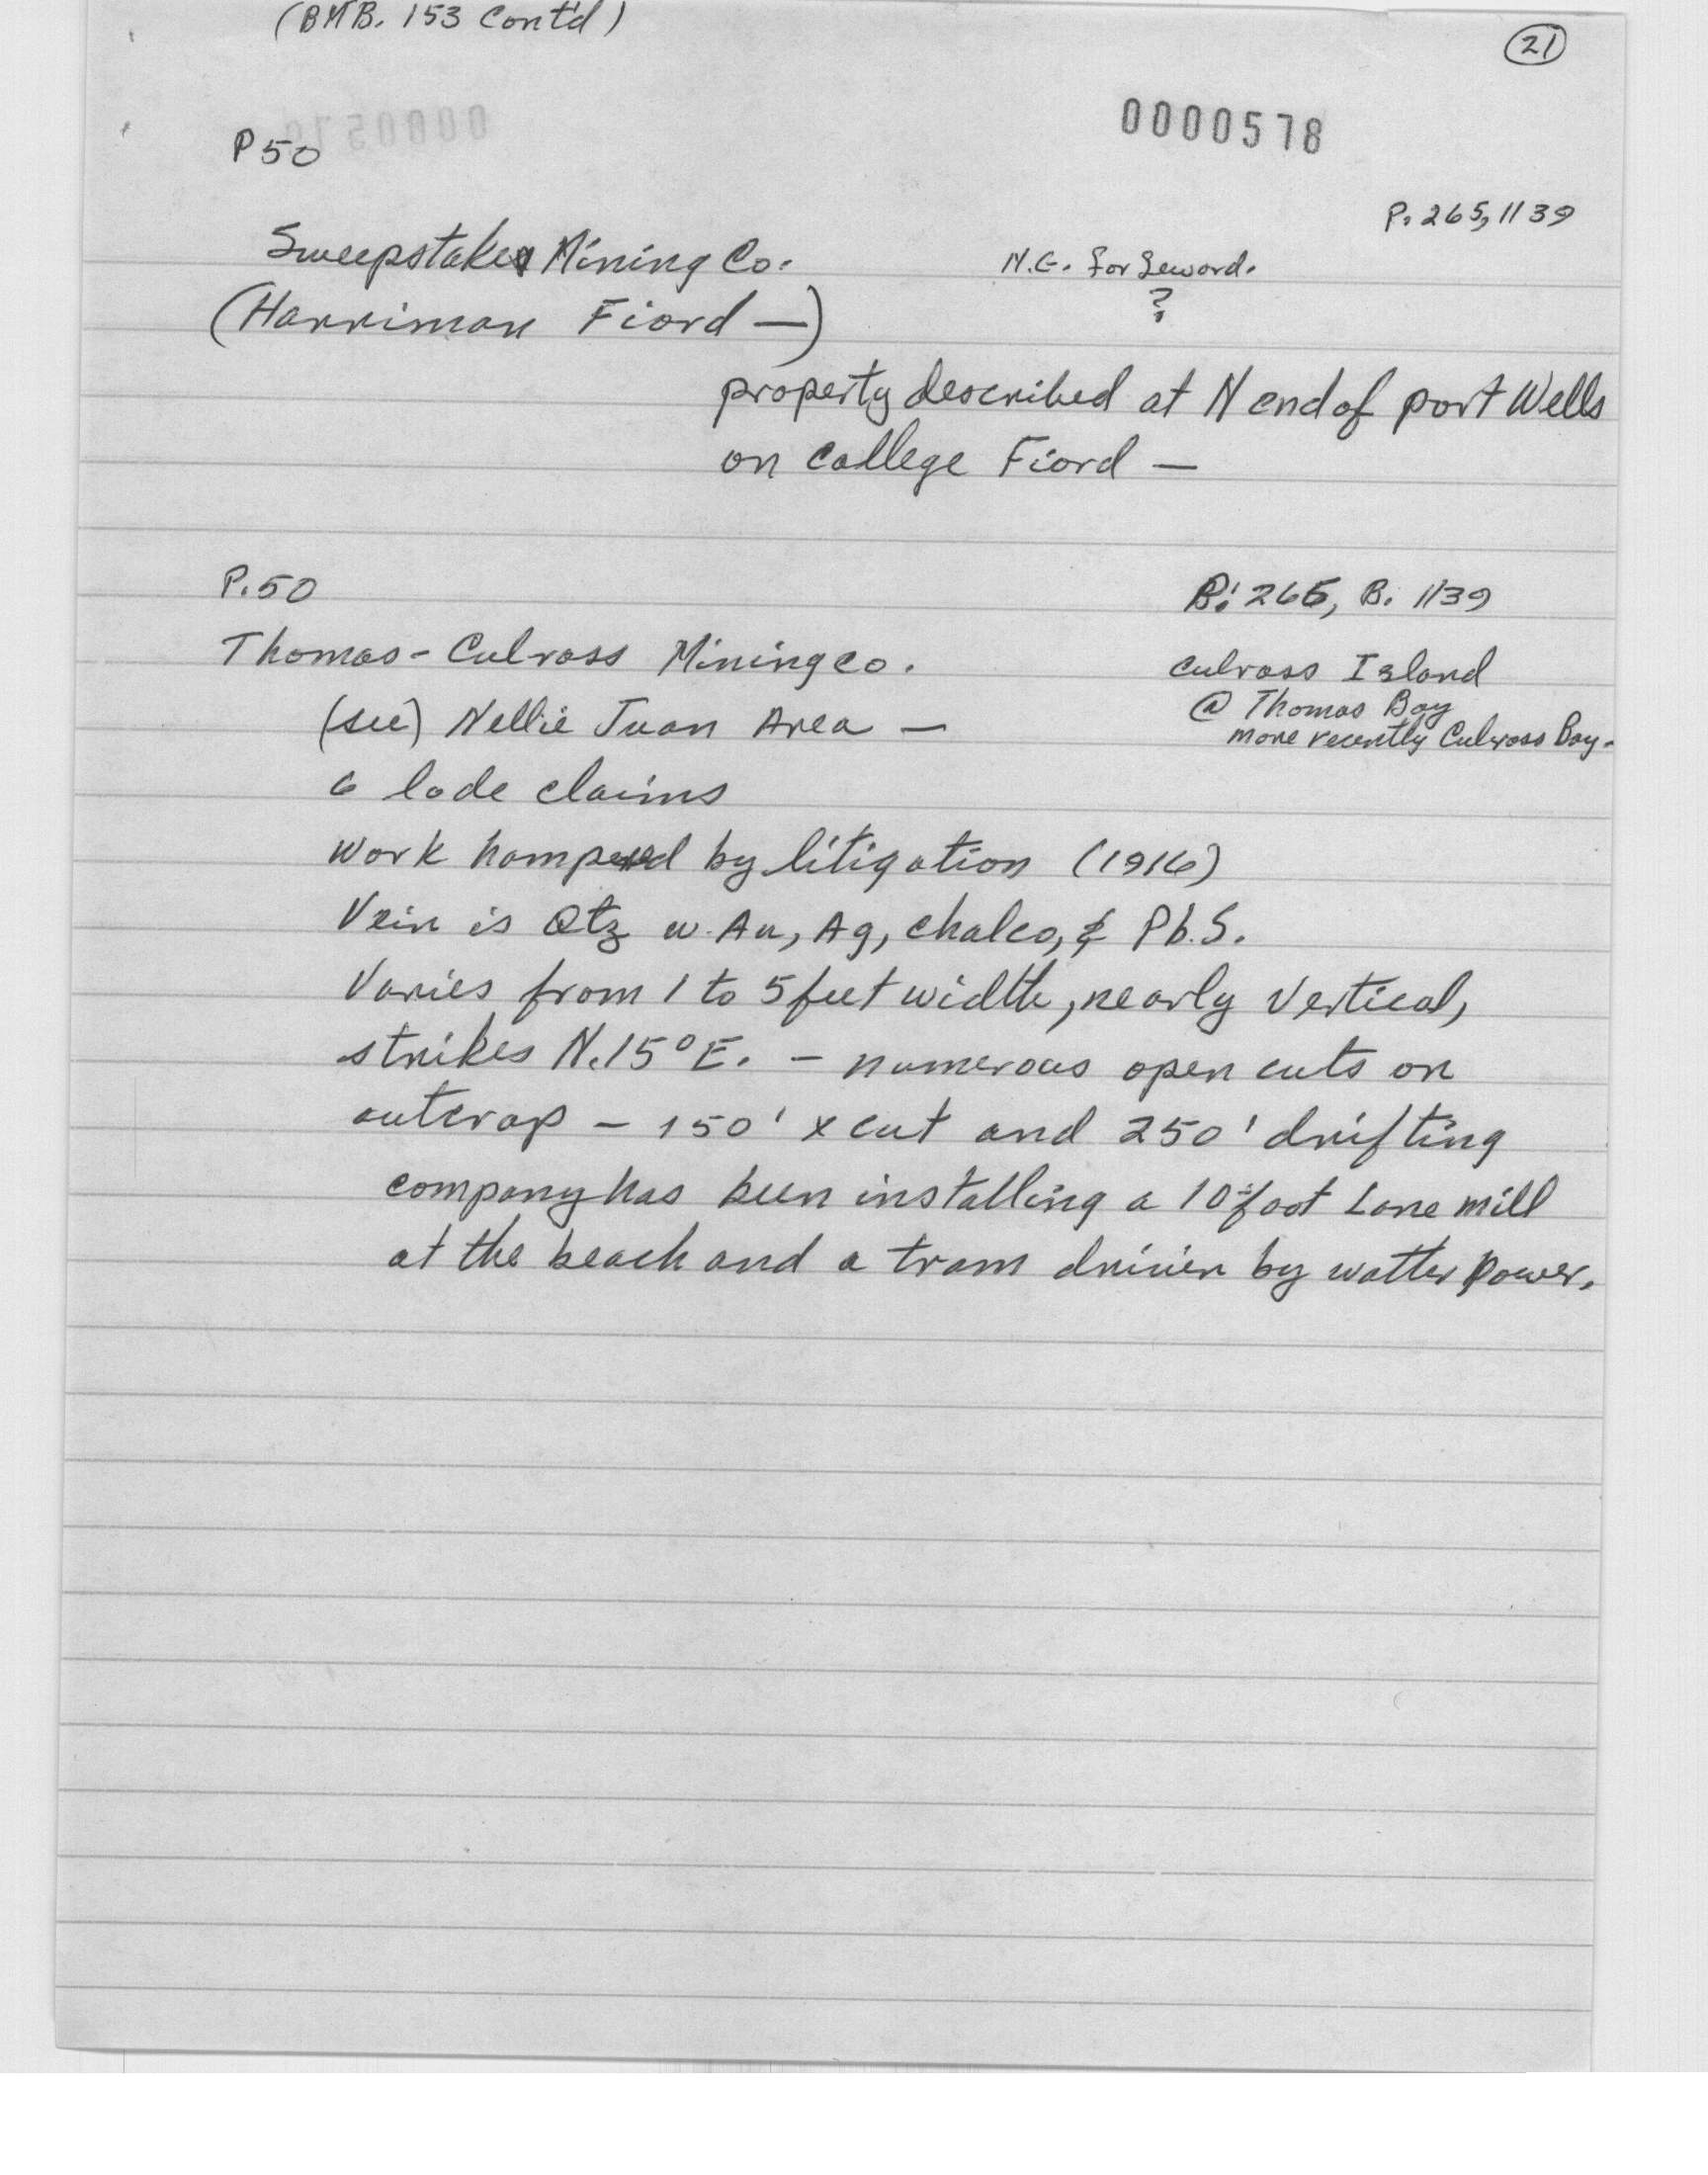 (BMB. 153 Cont'd)
21
0000578
P 50
P. 265, 1139
Sweepstakes Mining Co.
N.G. for Seward.
?
(Harriman Fiord —)
property described at N end of port Wells
on College Fiord —
P. 50
B: 265, B. 1139
Thomas-Culross Mining co.
Culross Island
@ Thomas Bay
more recently Culross Bay -
(see) Nellie Juan Area —
6 lode claims
work hampered by litigation (1916)
Vein is Qtz w. Au, Ag, chalco, & Pb.S.
Varies from 1 to 5 feet width, nearly vertical,
strikes N.15°E. - numerous open cuts on
outcrop - 150' x cut and 250' drifting
company has been installing a 10-foot Lane mill
at the beach and a tram driven by watter power.